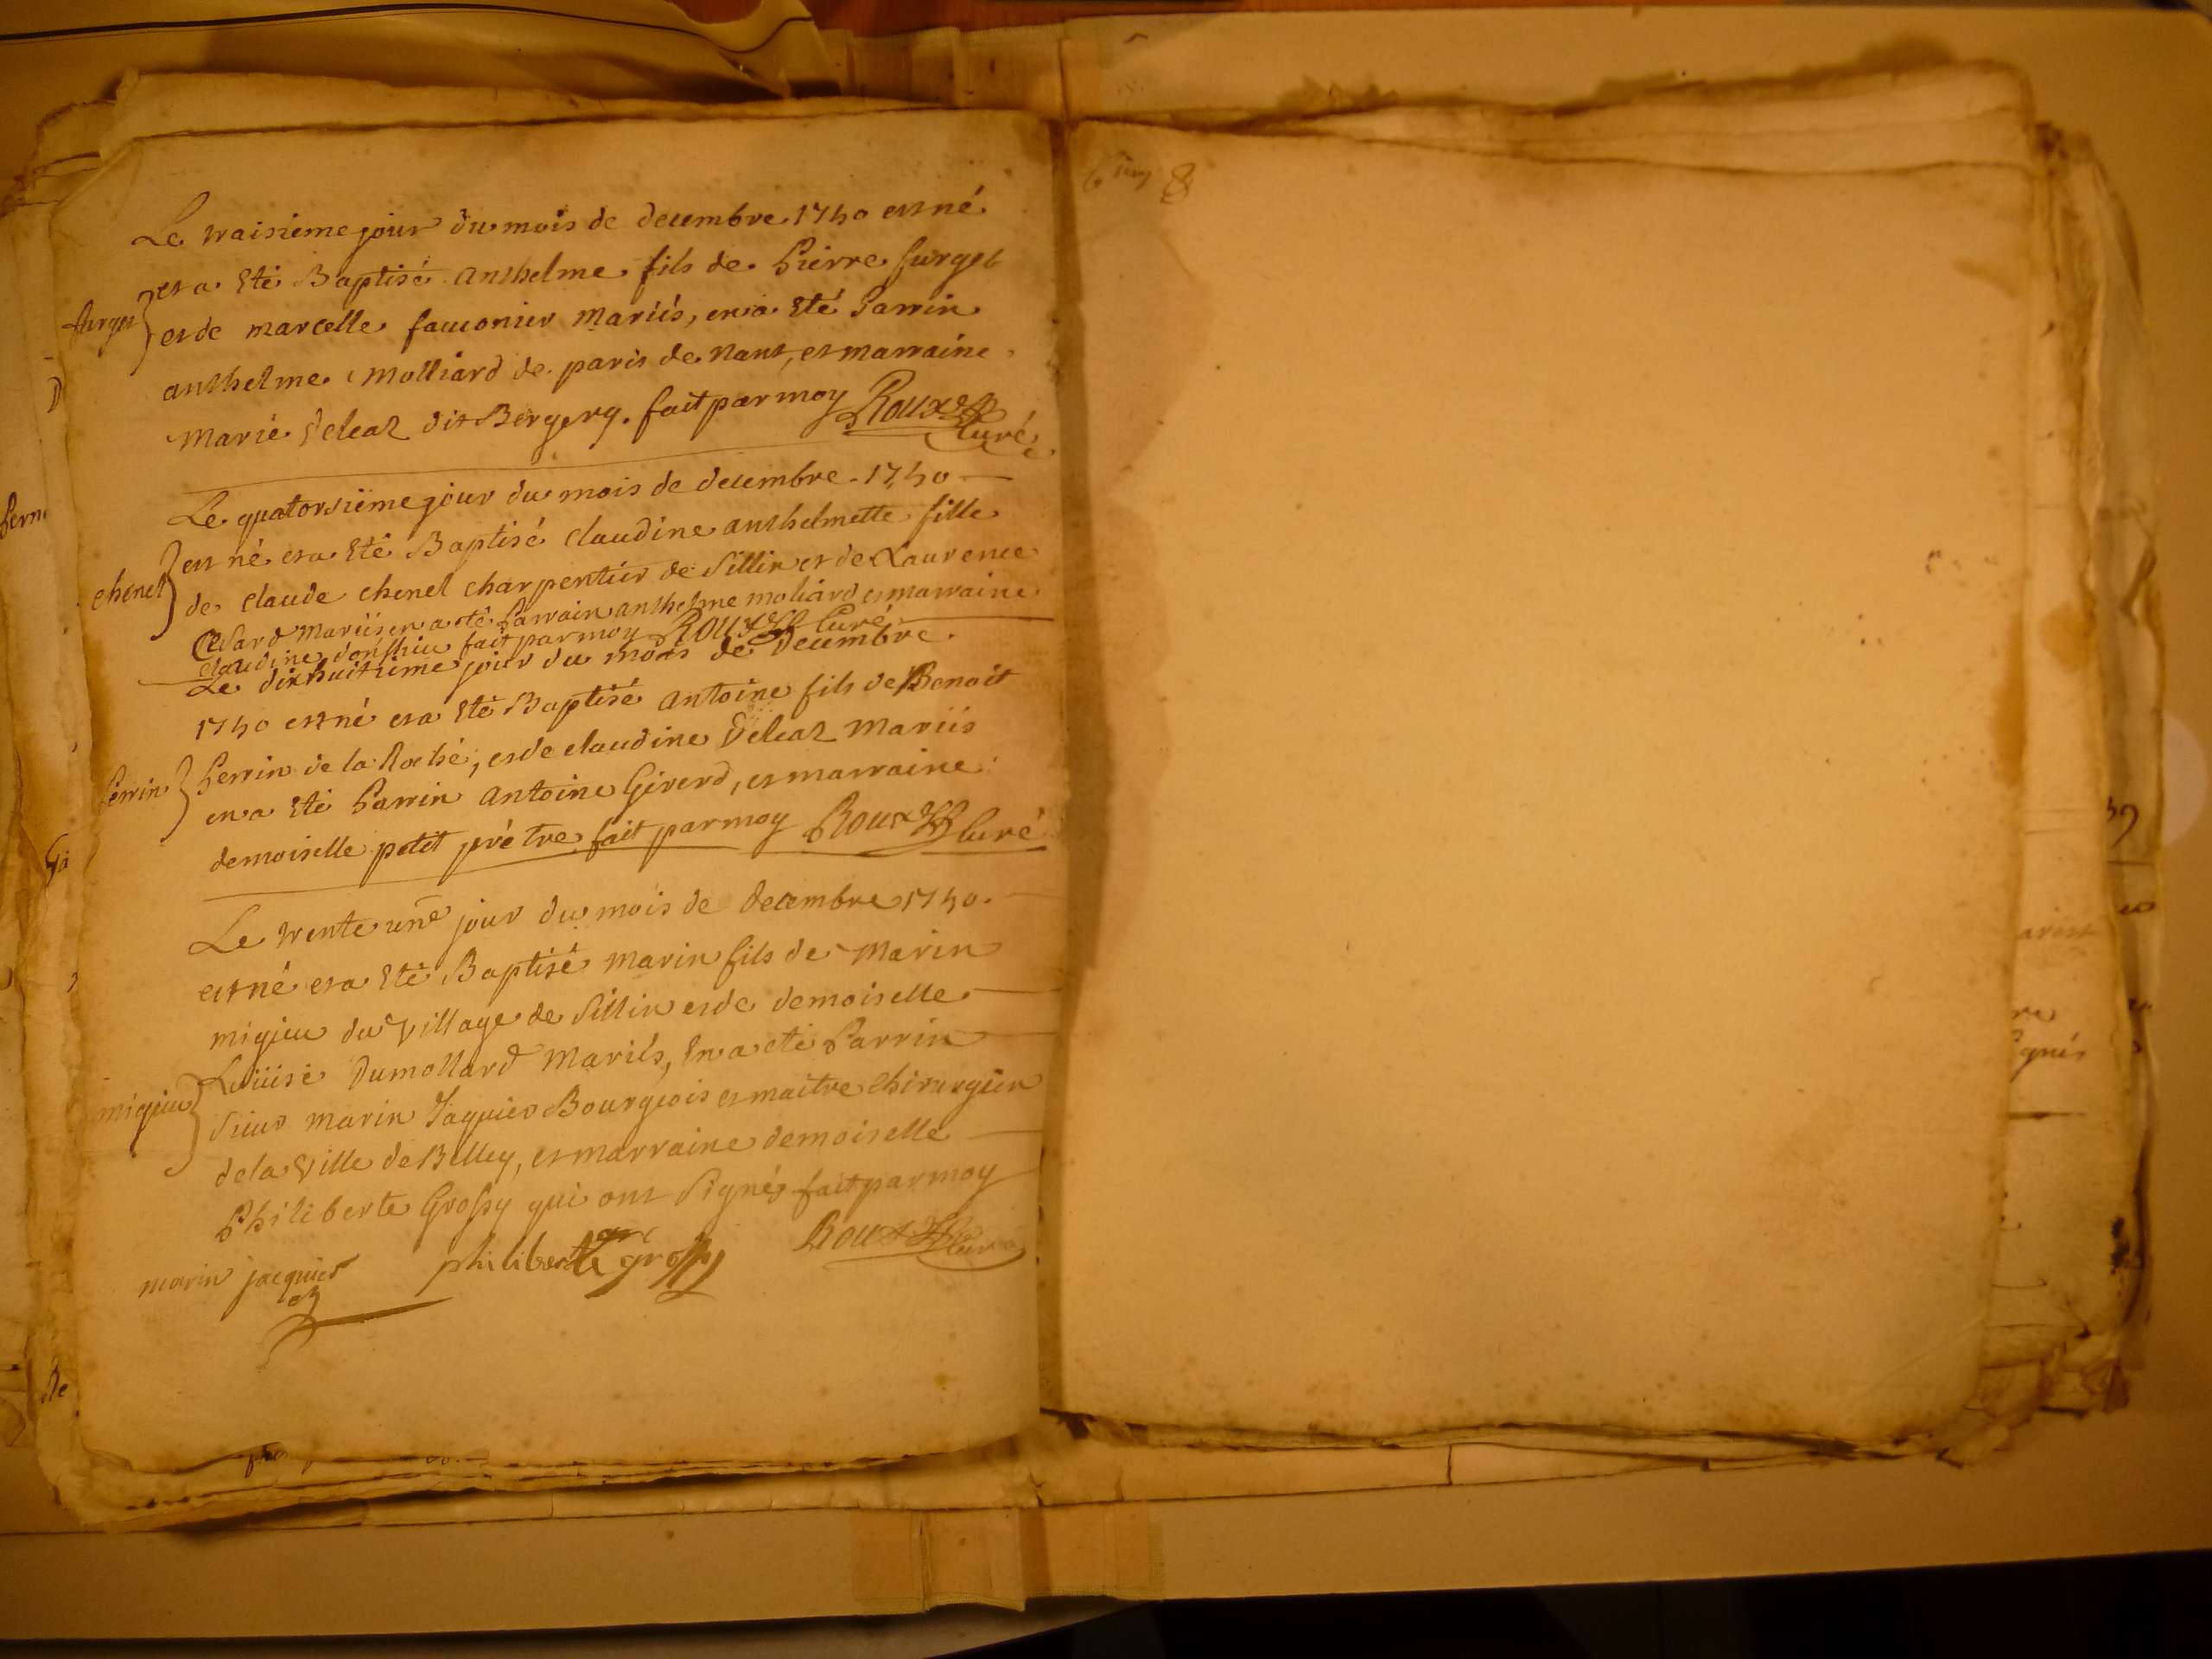 Le traisième jour du mois de decembre 1740 est né
et a Eté Baptisé anthelme fils de Pierre furget
furget
et de marcelle fauconier mariés, en a Eté Parrin
anthelme molliard de paris de nant, et marraine
marie deleaz dit Bergery. fait par moy Roux Curé
Le quatorsième jour du mois de decembre 1740
est né et a Eté Baptisé claudine anthelmette fille
chenel
de claude chenel charpentier de sillin et de Laurence
mariés en a été Parrain anthelme moliard et marraine
claudine fait par moy Roux Curé
Le dixhuitième jour du mois de decembre
1740 est né et a Eté Baptisé antoine fils de Benoit
Perrin
Perrin de la Roche, et de claudine deleaz mariés
en a Eté Parrin antoine Girerd, et marraine
demoiselle petit prêtre fait par moy Roux Curé
Le trente une jour du mois de decembre 1740
est né et a Eté Baptisé marin fils de marin
migieu du village de sillin et de demoiselle
migieu
Louise Dumollard mariés, En a eté Parrin
sieur marin Jaquier Bourgeois et maitre chirurgien
de la Ville de Belley, et marraine demoiselle
Philiberte Grossy qui ont signés fait par moy
Roux Curé
marin jacquier philiberte grossy